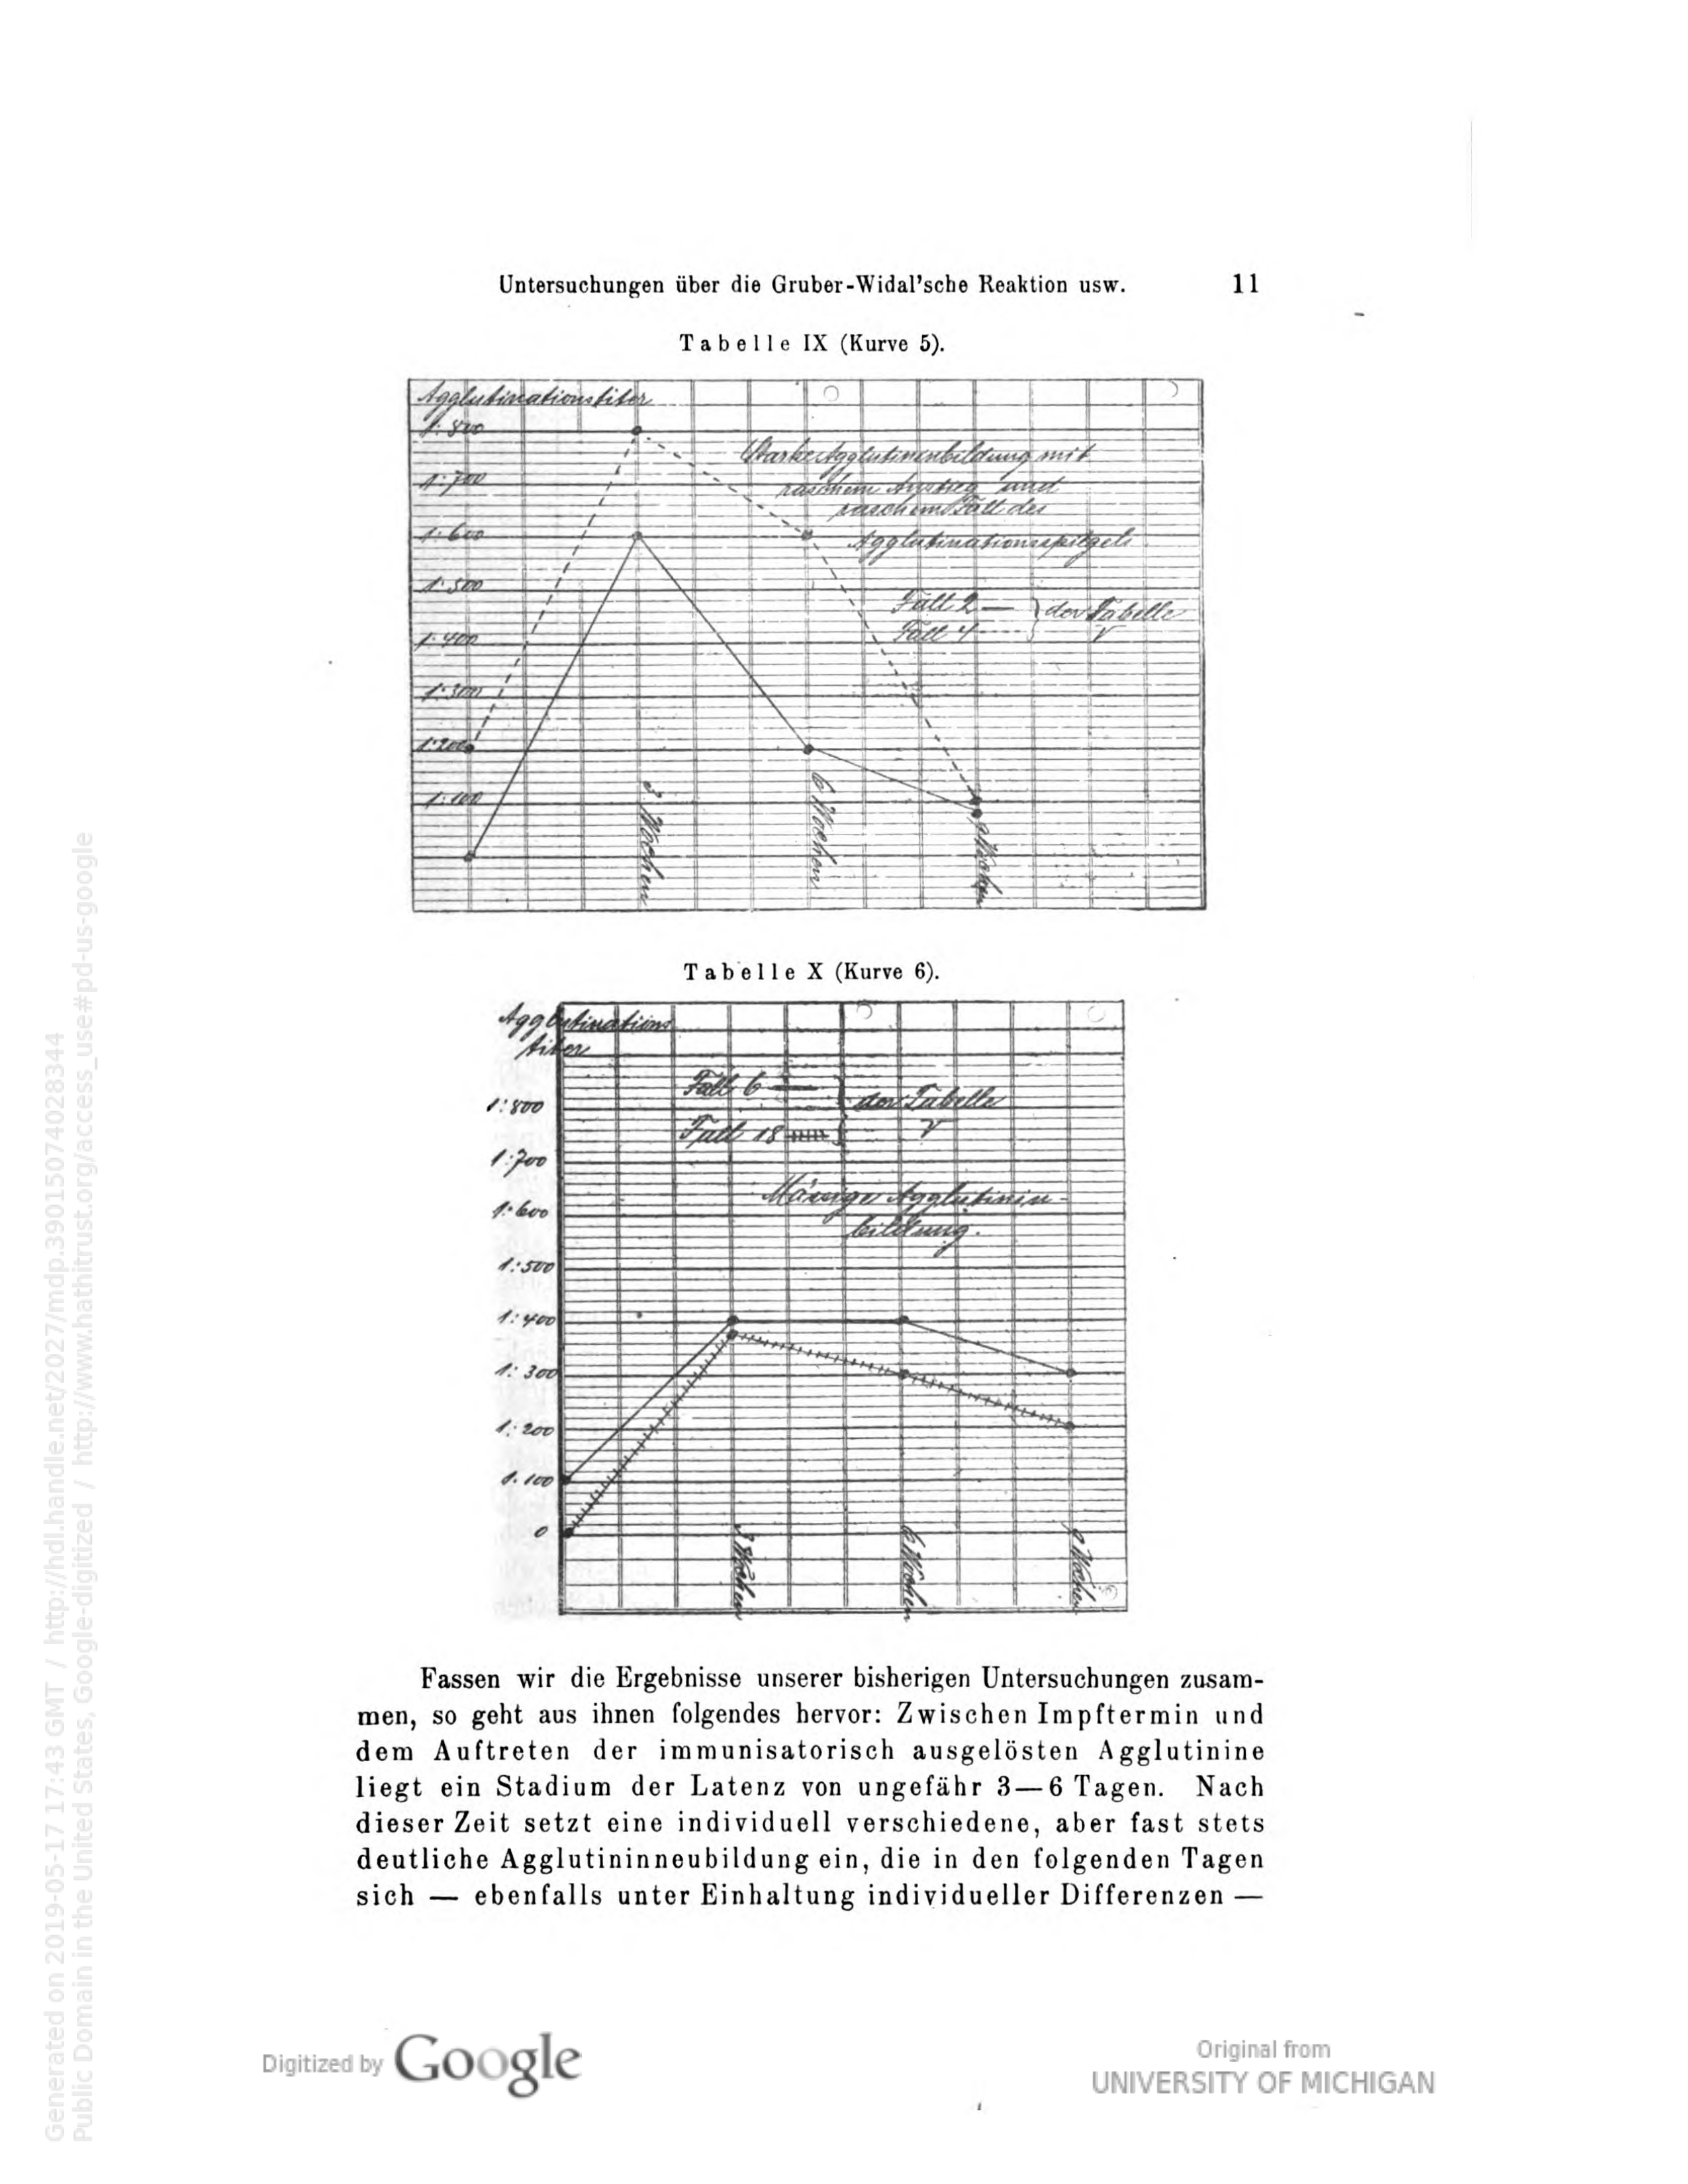 Untersuchungen über die Gruber-Widal'sche Reaktion usw. 11
Tabelle IX (Kurve 5).
Agglutinationstiter
1:800
1:700
1:600
1:500
1:400
1:300
1:200
1:100
Starke Agglutininbildung mit
raschem Anstieg und
raschem Fall des
Agglutinationsspiegels
Fall 2 — } der Tabelle
Fall 4 ---- V
3 Wochen
6 Wochen
9 Wochen
Tabelle X (Kurve 6).
Agglutinations
titer
Fall 6 — } der Tabelle
Fall 18 V
Mässige Agglutinin-
bildung.
1:800
1:700
1:600
1:500
1:400
1:300
1:200
1:100
0
3 Wochen
6 Wochen
9 Wochen
Fassen wir die Ergebnisse unserer bisherigen Untersuchungen zusam-
men, so geht aus ihnen folgendes hervor: Zwischen Impftermin und
dem Auftreten der immunisatorisch ausgelösten Agglutinine
liegt ein Stadium der Latenz von ungefähr 3—6 Tagen. Nach
dieser Zeit setzt eine individuell verschiedene, aber fast stets
deutliche Agglutininneubildung ein, die in den folgenden Tagen
sich — ebenfalls unter Einhaltung individueller Differenzen —
Digitized by Google
Original from
UNIVERSITY OF MICHIGAN
Generated on 2019-05-17 17:43 GMT / http://hdl.handle.net/2027/mdp.39015074028344
Public Domain in the United States, Google-digitized / http://www.hathitrust.org/access_use#pd-us-google